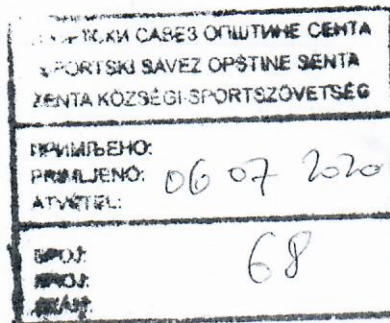 САВЕЗ ОПШТИНЕ СЕНТА
SPORTSKI SAVEZ OPŠTINE SENTA
ZENTA KÖZSÉGI SPORTSZÖVETSÉG
ПРИМЉЕНО:
PRIMLJENO: 06 07 2020
ÁTVÉTEL:
БРОЈ:
BROJ: 68